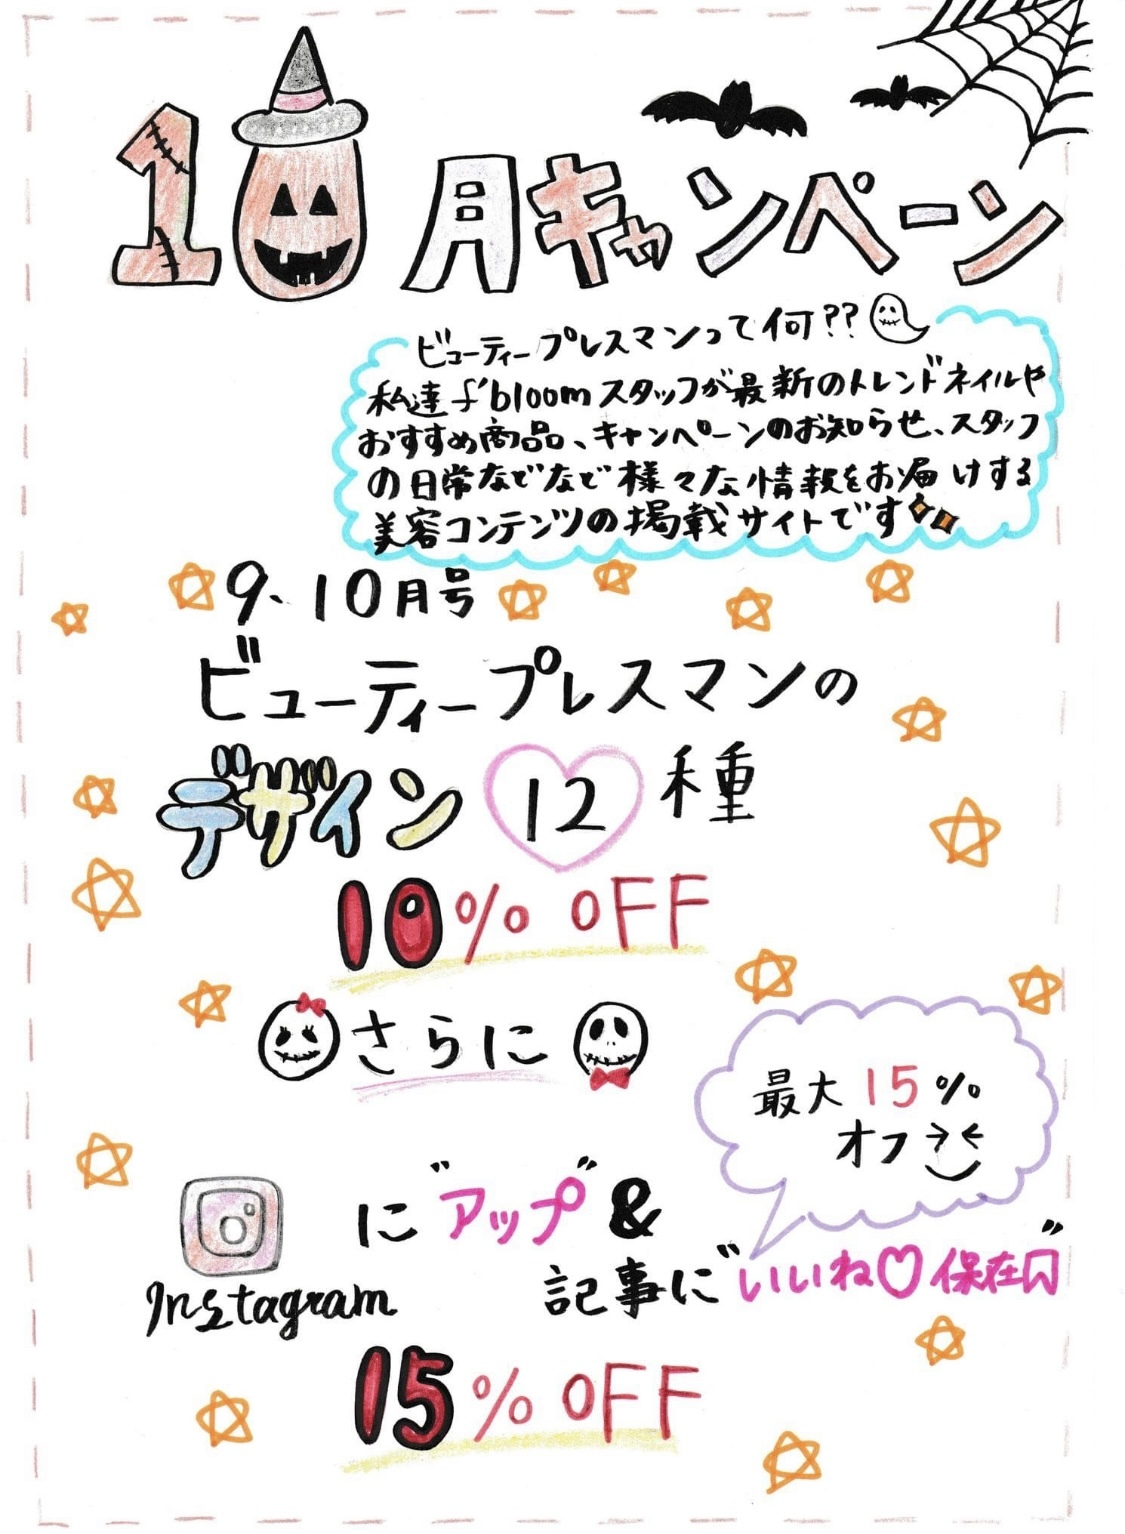 10月キャンペーン
ビューティープレスマンって何??
私達 f'bloomスタッフが最新のトレンドネイルや
おすすめ商品、キャンペーンのお知らせ、スタッフ
の日常などなど様々な情報をお届けする
美容コンテンツの掲載サイトです
9、10月号
ビューティープレスマンの
デザイン 12 種
10% OFF
さらに
最大 15%
オフ
Instagram
に"アップ"&
記事に"いいね♡保存"
15% OFF